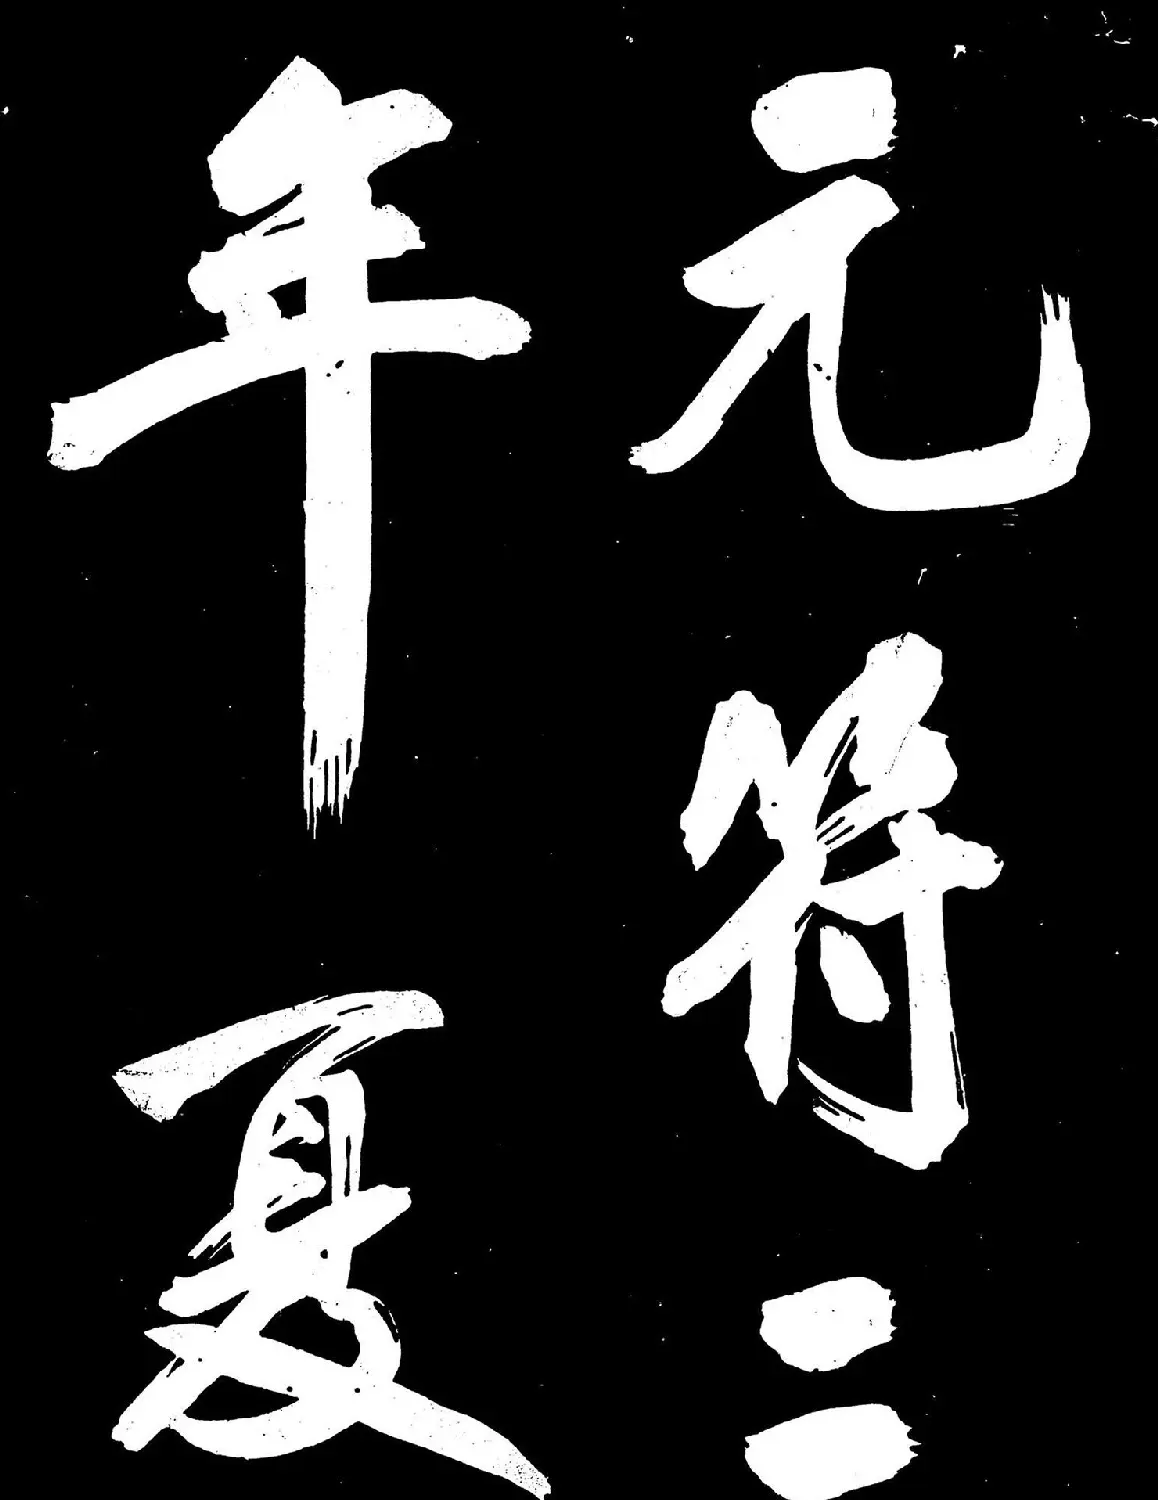 元符二
年夏